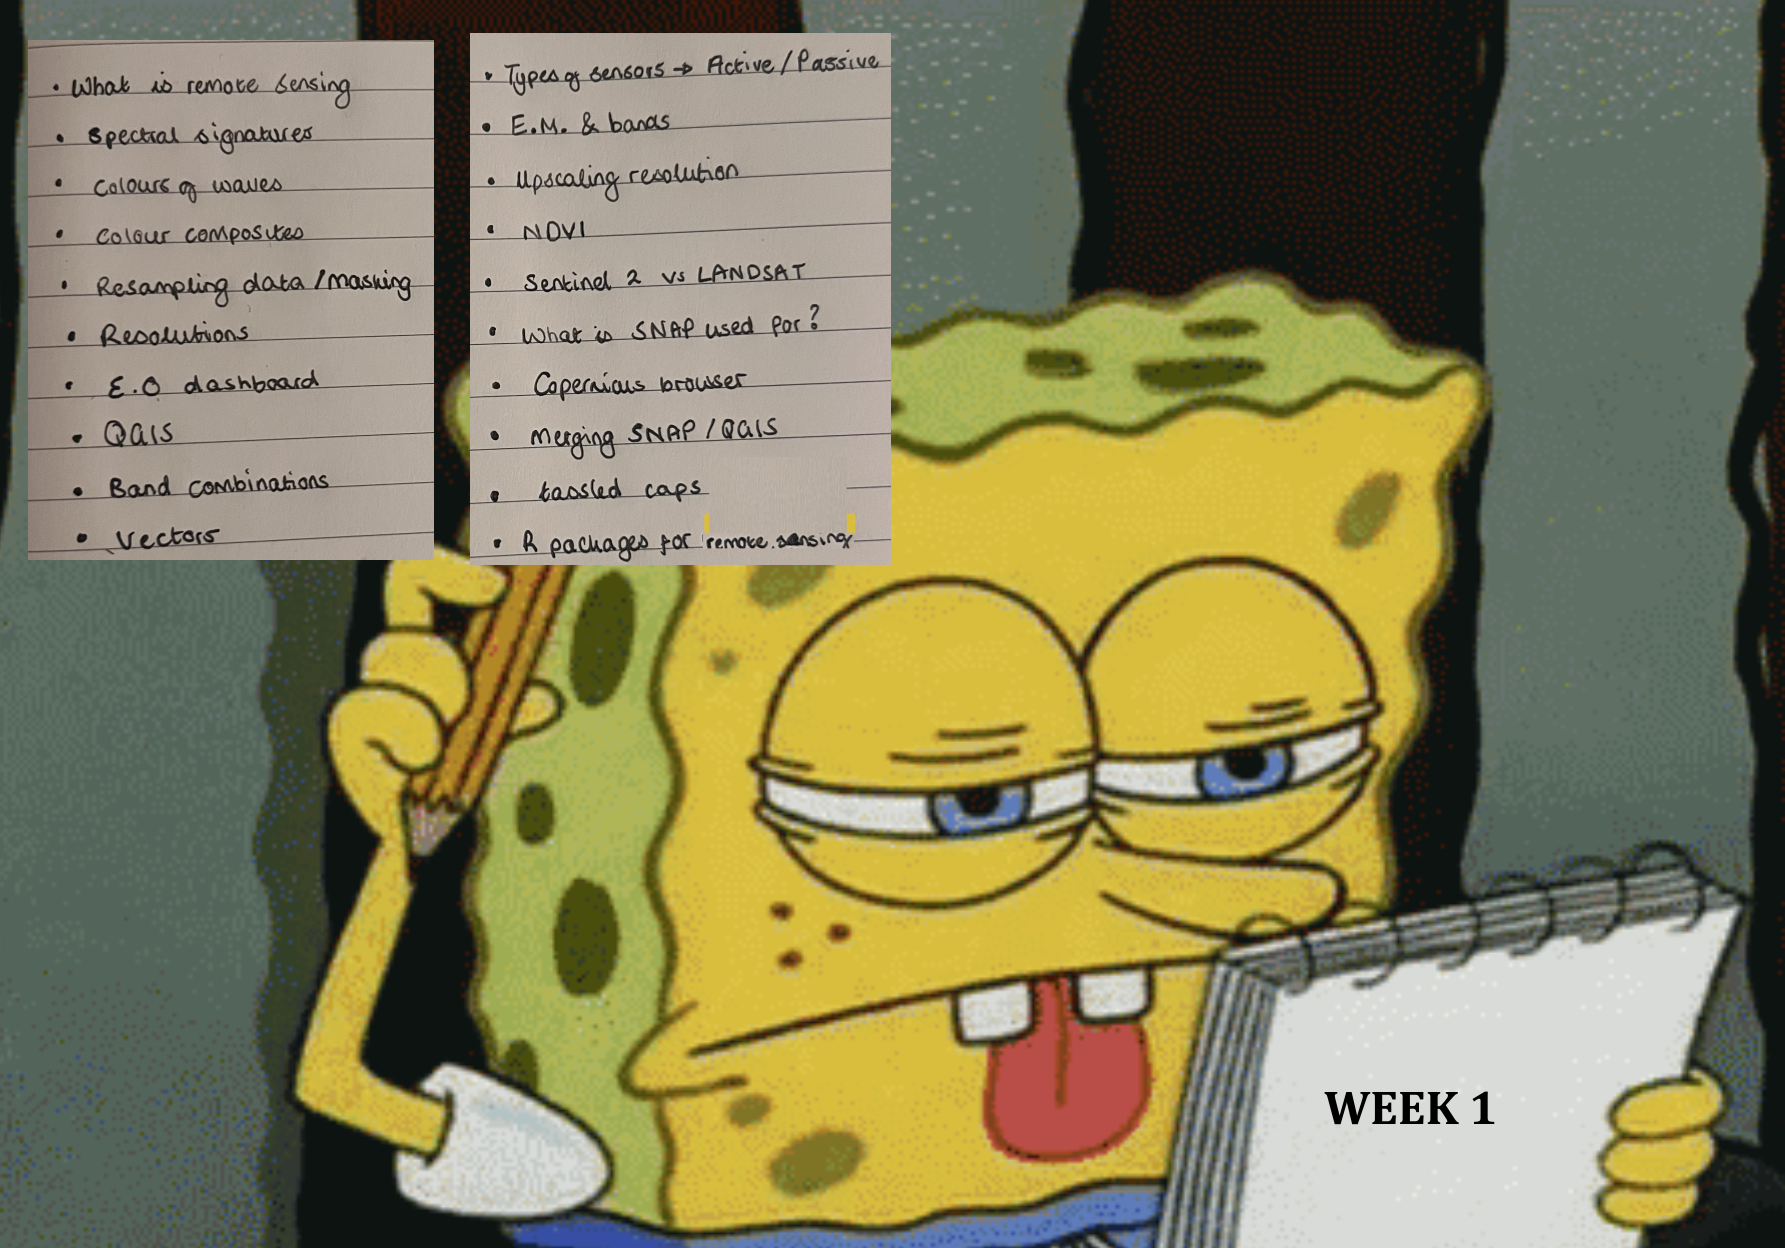 • What is remote sensing
• Spectral signatures
• Colours of waves
• Colour composites
• Resampling data / masking
• Resolutions
• E.O dashboard
• QGIS
• Band combinations
• Vectors
• Types of sensors → Active / Passive
• E.M. & bands
• Upscaling resolution
• NDVI
• Sentinel 2 vs LANDSAT
• What is SNAP used for?
• Copernicus browser
• Merging SNAP / QGIS
• tassled caps
• R packages for remote sensing
WEEK 1